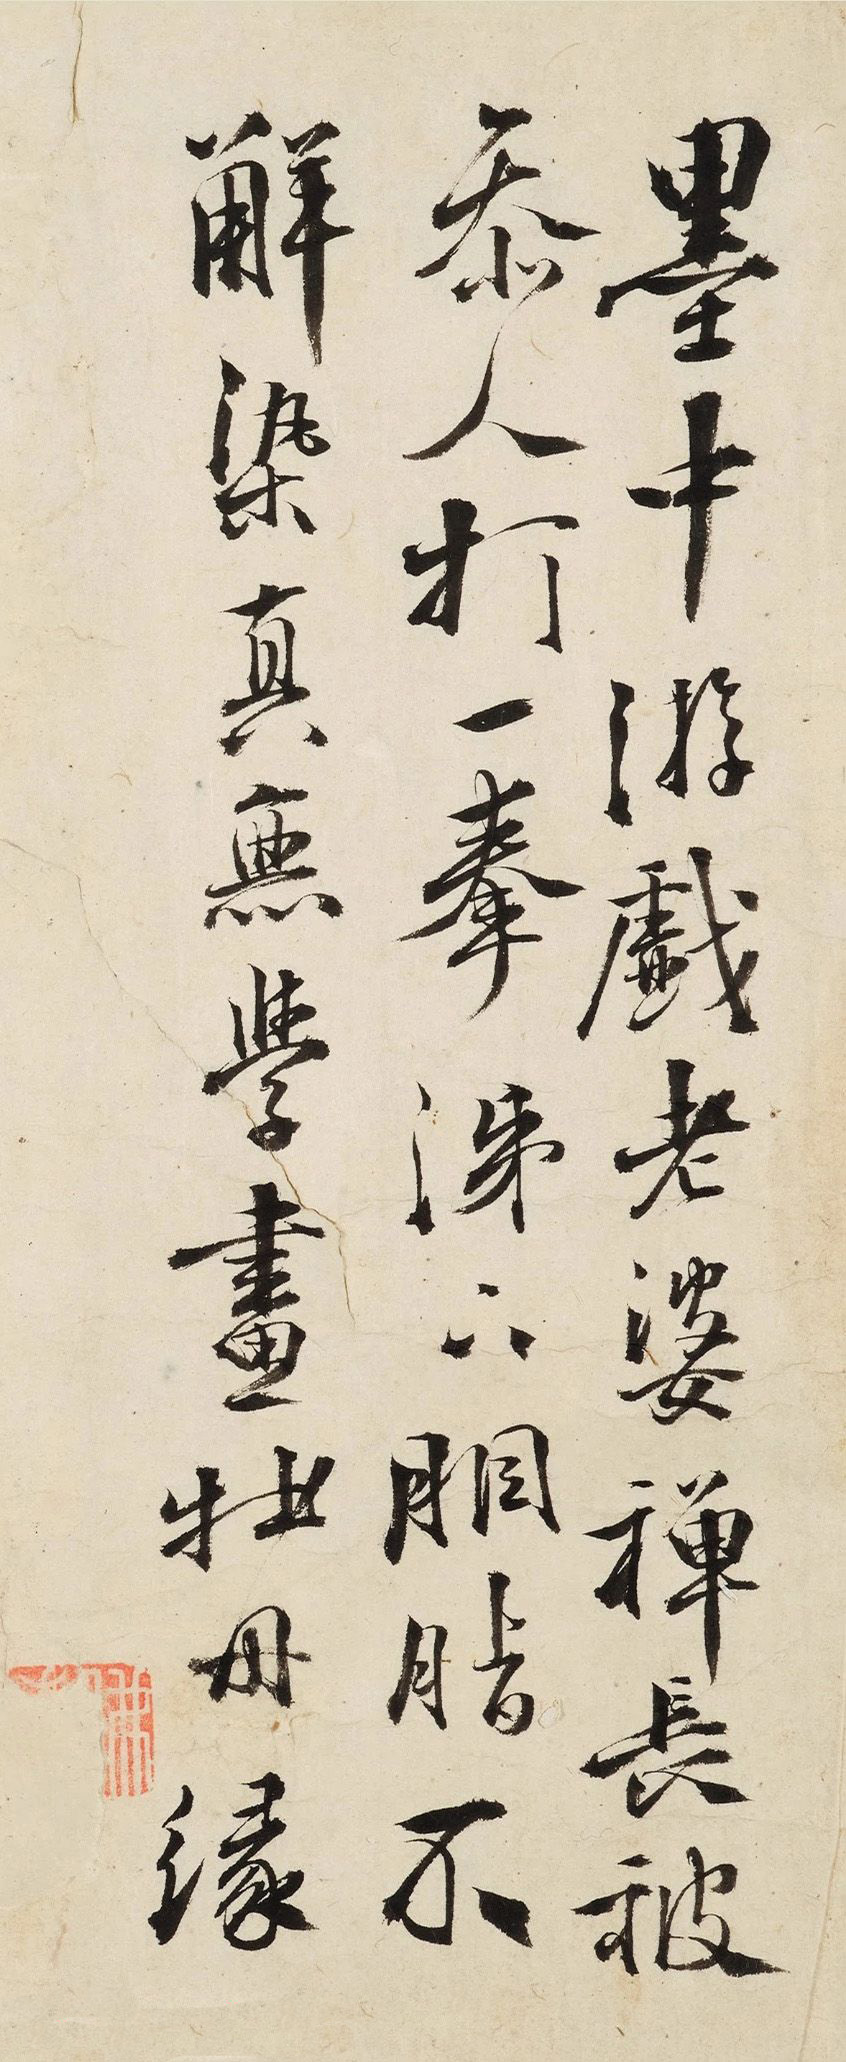 墨中游戲老婆禪長被
忝人打一拳涕下胭脂不
解染真無學畫牡丹緣